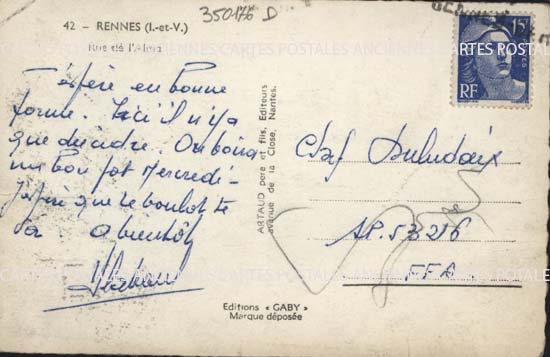 42 - RENNES (I.-et-V.)
Rue de l'Alma
350176 D
15F
POSTES
RF
J'espère en bonne
forme. Ici il n'y a
que du cidre. On boira
un bon pot Mercredi -
J'espère que le boulot te
va a bientôt
ARTAUD père et fils, Editeurs
avenue de la Close, Nantes.
Chef
AP. 53216
FFA
Editions « GABY »
Marque déposée
CARTES POSTALES ANCIENNES